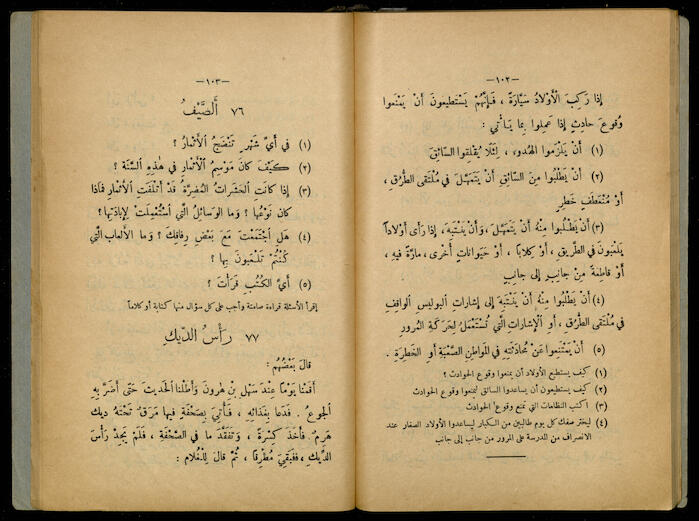 —١٠٢—
إذا رَكِبَ الْأَوْلادُ سَيّارَةً ، فَإِنَّهُمْ يَسْتَطِيعُونَ أَنْ يَمْنَعوا
وُقوعَ حادِثٍ إذا عَمِلوا بِما يَأْتي :
(١) أَنْ يَلْزَموا الْهُدوءَ ، لِئَلّا يُقْلِقوا السّائِقَ
(٢) أَنْ يَطْلُبوا مِنَ السّائِقِ أَنْ يَتَمَهَّلَ في مُلْتَقى الطُّرُقِ ،
أَوْ مُنْعَطَفٍ خَطِرٍ
(٣) أَنْ يَطْلُبوا مِنْهُ أَنْ يَتَمَهَّلَ ، وَأَنْ يَنْتَبِهَ ، إِذا رَأى أَوْلاداً
يَلْعَبونَ في الطَّريقِ ، أَوْ كِلاباً ، أَوْ حَيَواناتٍ أُخْرى ، مارَّةً فيهِ ،
أَوْ قاطِعَةً مِنْ جانِبٍ إِلى جانِبٍ
(٤) أَنْ يَطْلُبوا مِنْهُ أَنْ يَنْتَبِهَ إِلى إِشاراتِ الْبوليسِ الْواقِفِ
في مُلْتَقى الطُّرُقِ ، أَوِ الْإِشاراتِ الَّتي تُسْتَعْمَلُ لِحَرَكَةِ الْمُرورِ
(٥) أَنْ يَمْتَنِعوا عَنْ مُحادَثَتِهِ في الْمَواطِنِ الصَّعْبَةِ أَوِ الْخَطِرَةِ .
(١) كيف يستطيع الأولاد أن يمنعوا وقوع الحوادث ؟
(٢) كيف يستطيعون أن يساعدوا السائق ليمنعوا وقوع الحوادث
(٣) اكتب النظامات التي تمنع وقوع الحوادث
(٤) ليختر صفك كل يوم طالبين من الكبار ليساعدوا الأولاد الصغار عند
الانصراف من المدرسة على المرور من جانب إلى جانب
—١٠٣—
٧٦ أَلصَّيْفُ
(١) في أَيِّ شَهْرٍ تَنْضَجُ الْأَثْمارُ ؟
(٢) كَيْفَ كانَ مَوْسِمُ الْأَثْمارِ في هٰذِهِ السَّنَةِ ؟
(٣) إِذا كانَتِ الْحَشَراتُ الْمُضِرَّةُ قَدْ أَتْلَفَتِ الْأَثْمارَ فَماذا
كانَ نَوْعُها ؟ وَما الْوَسائِلُ الَّتي اسْتُعْمِلَتْ لِإِبادَتِها ؟
(٤) هَلِ اجْتَمَعْتَ مَعَ بَعْضِ رِفاقِكَ ؟ وَما الْأَلْعابُ الَّتي
كُنْتُمْ تَلْعَبونَ بِها ؟
(٥) أَيَّ الْكُتُبِ قَرَأْتَ ؟
إقرأ الأسئلة قراءة صامتة وأجب على كل سؤال منها كتابة أو كلاماً
٧٧ رَأْسُ الدِّيكِ
قالَ بَعْضُهُمْ :
أَقَمْنا يَوْماً عِنْدَ سَهْلِ بْنِ هٰرونَ وَأَطَلْنا الْحَديثَ حَتّى أَضَرَّ بِهِ
الْجوعُ . فَدَعا بِغَدائِهِ ، فَأُتِيَ بِصَحْفَةٍ فيها مَرَقٌ تَحْتَهُ ديكٌ
هَرِمٌ . فَأَخَذَ كِسْرَةً ، وَتَفَقَّدَ ما في الصَّحْفَةِ ، فَلَمْ يَجِدْ رَأْسَ
الدِّيكِ ، فَبَقِيَ مُطْرِقاً ، ثُمَّ قالَ لِلْغُلامِ :